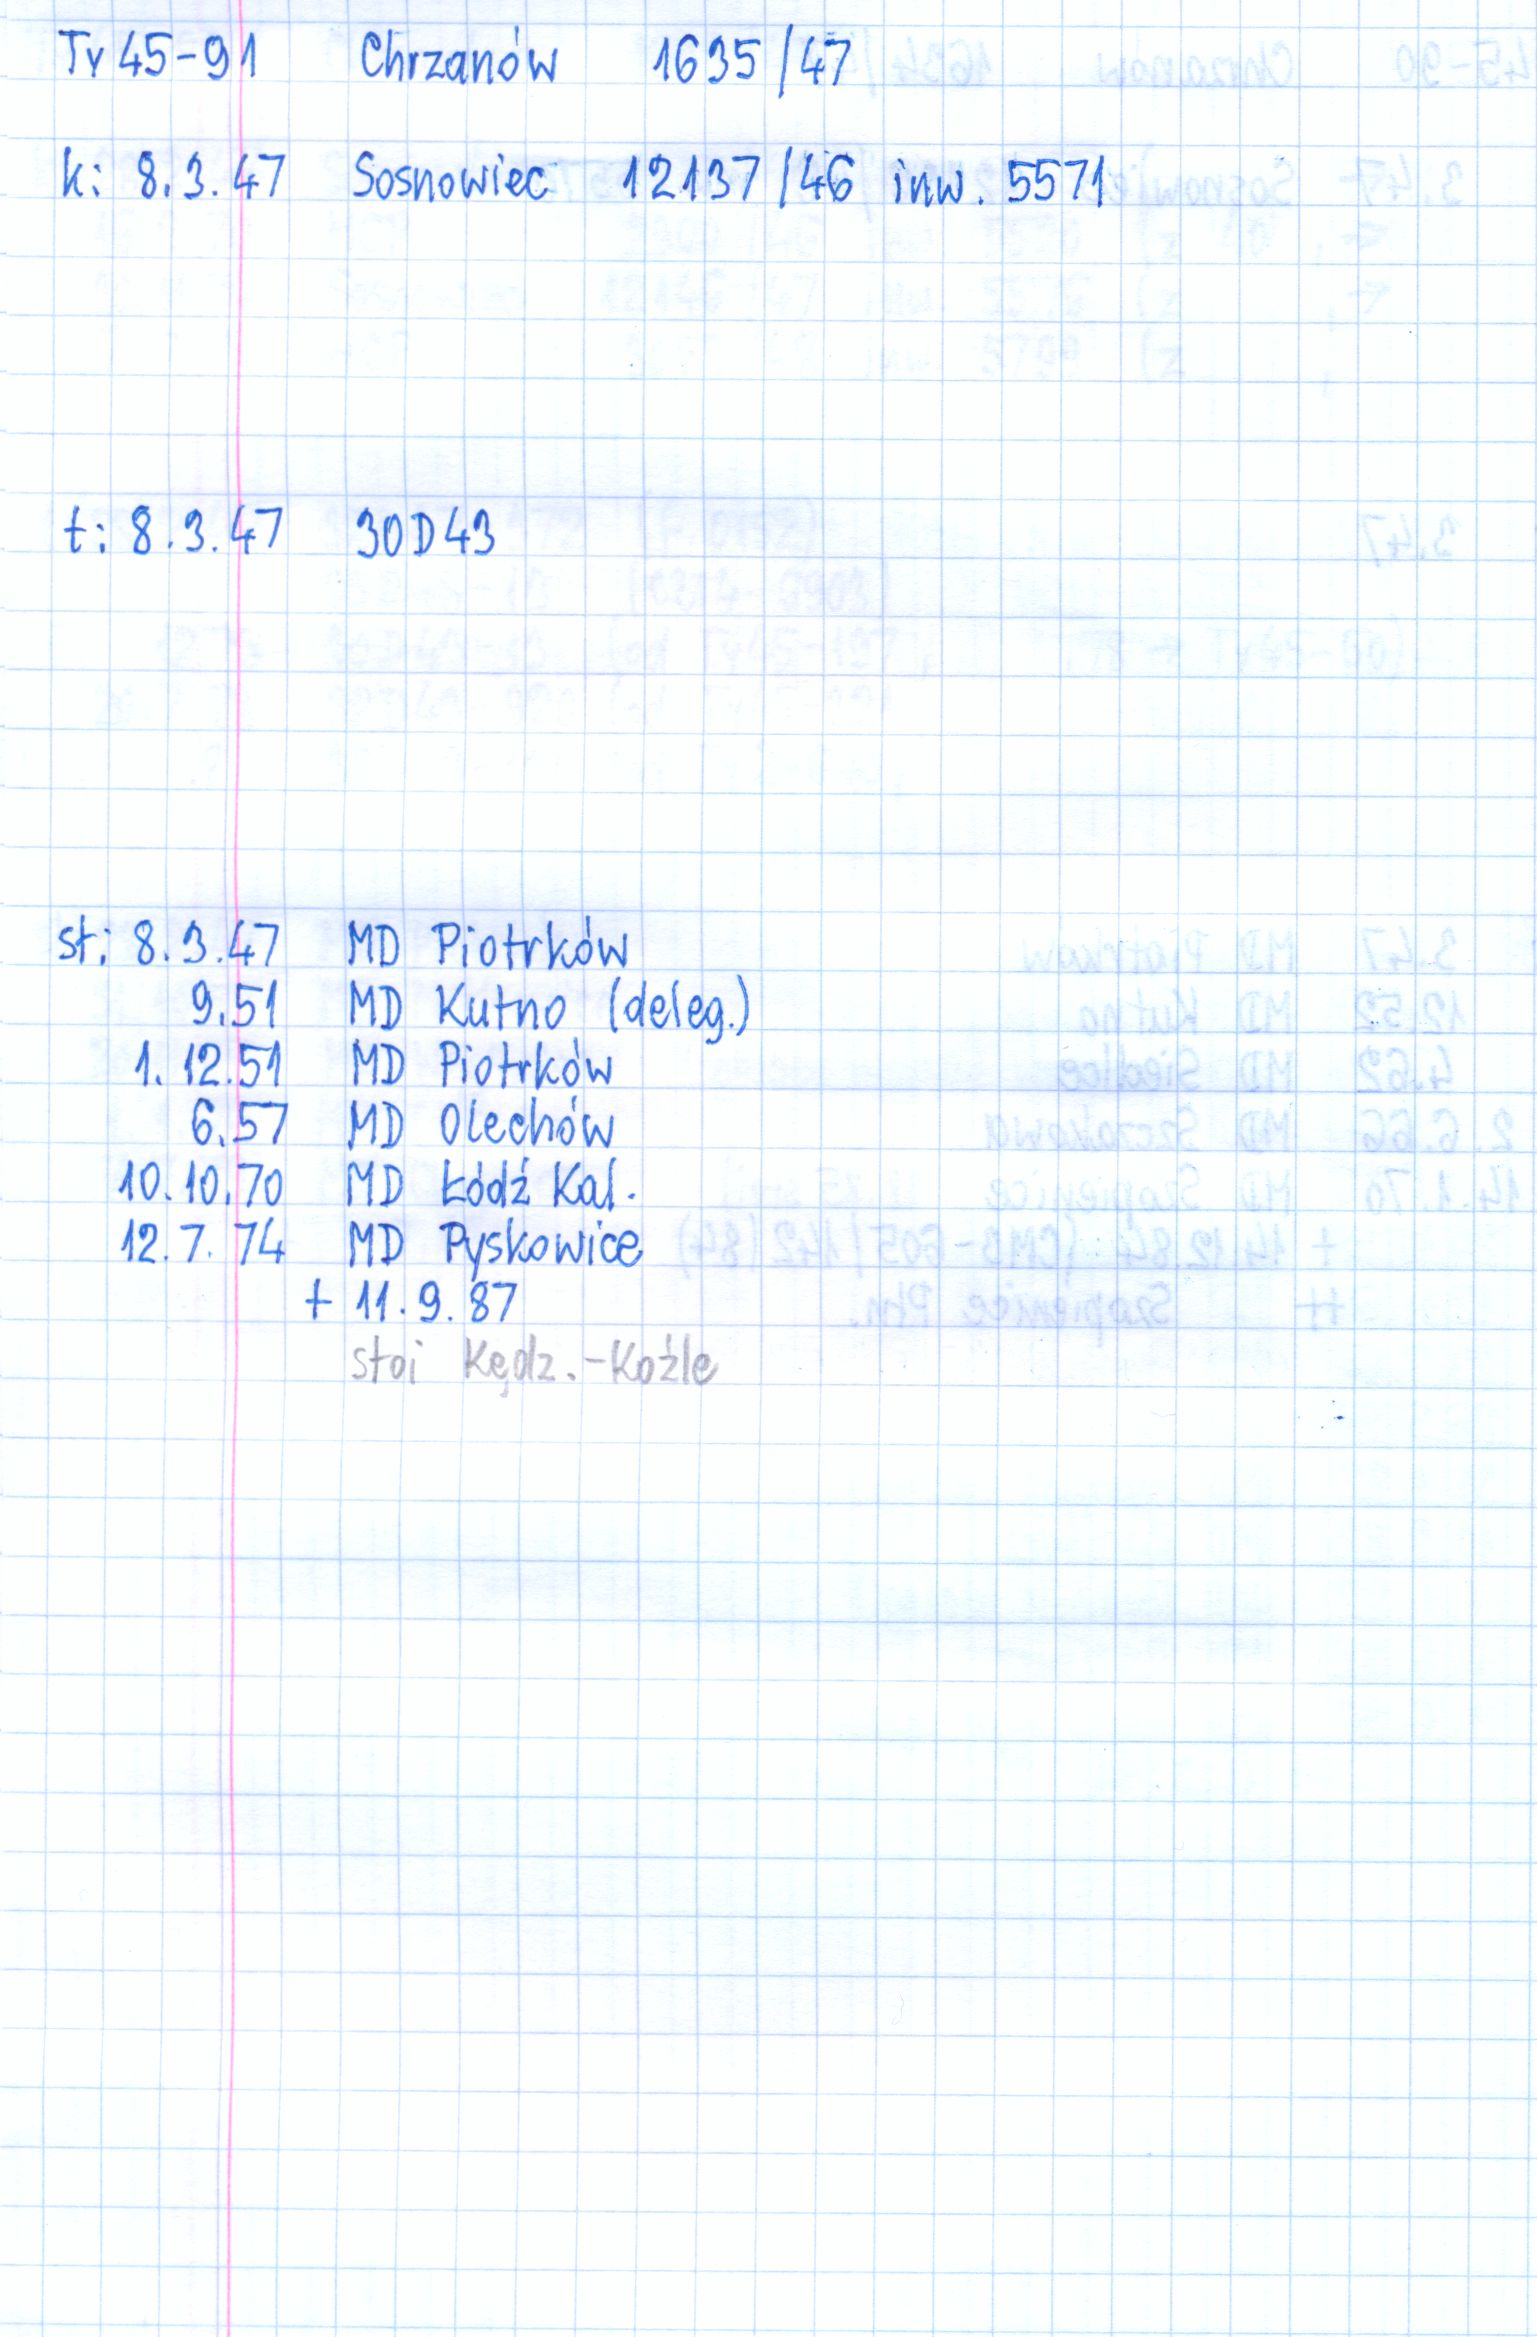 Ty 45-91 Chrzanów 1635/47
k: 8.3.47 Sosnowiec 12137/46 inw. 5571
t: 8.3.47 30D43
st: 8.3.47 MD Piotrków
9.51 MD Kutno (deleg.)
1.12.51 MD Piotrków
6.57 MD Olechów
10.10.70 MD Łódź Kal.
12.7.74 MD Pyskowice
+ 11.9.87
stoi Kędz.-Koźle